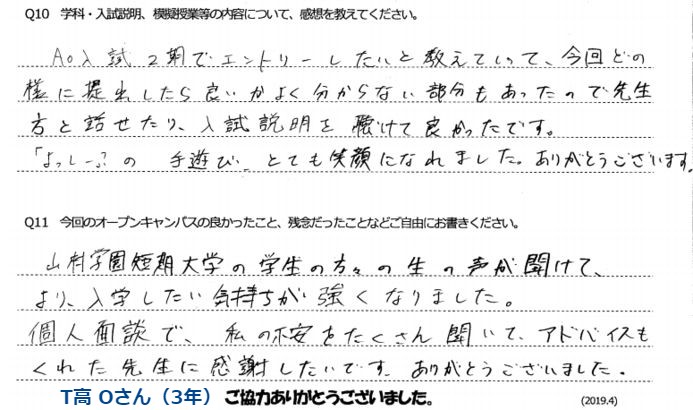 Q10 学科・入試説明、模擬授業等の内容について、感想を教えてください。
AO入試2期でエントリーしたいと教えていって、今回どの
様に提出したら良いかよく分からない部分もあったので先生
方と話せたり、入試説明を聴けて良かったです。
「よっしーの 手遊び」とても笑顔になれました。ありがとうございます。
Q11 今回のオープンキャンパスの良かったこと、残念だったことなどご自由にお書きください。
山村学園短期大学の学生の方々の生の声が聞けて、
より、入学したい気持ちが強くなりました。
個人面談で、私の不安をたくさん聞いて、アドバイスも
くれた先生に感謝したいです。ありがとうございました。
T高 Oさん（3年） ご協力ありがとうございました。
(2019.4)